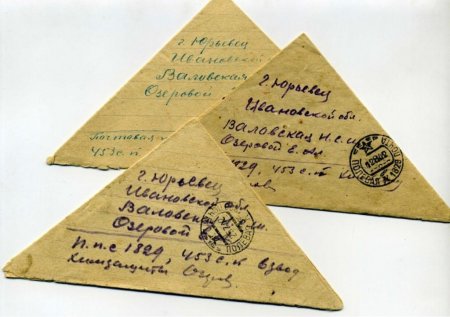 г. Юрьевец
Ивановской
Валовская
Озеровой
Почтовая
453 с.п
г. Юрьевец
Ивановской обл.
Валовская
Озеровой
1829, 453 с.п
ПОЛЕВАЯ
г. Юрьевец
Ивановской обл
Валовская
Озеровой
П.п.с 1829, 453 с.п взвод
Химзащиты
ПОЛЕВАЯ